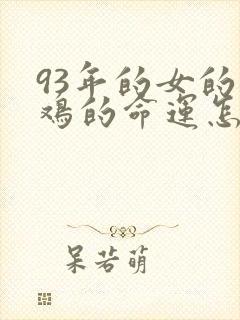 93年的女的
鸡的命运怎
呆若萌